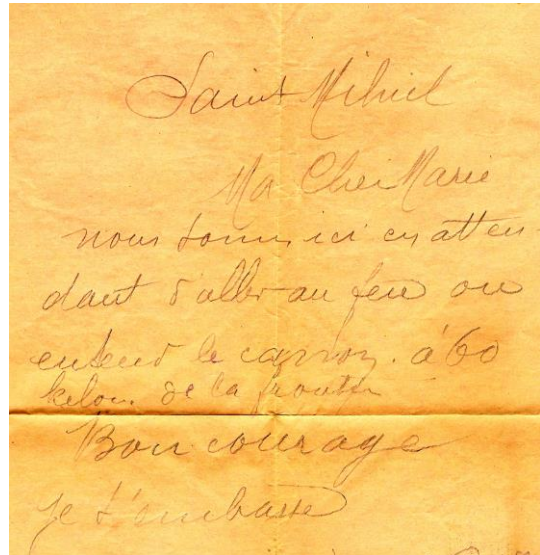 Saint Mihiel
Ma Cher Marie
nous somm ici en atten-
dant d'aller au feu on
entend le cannon. à 60
kelom. de la frontier
Bon courage
je t'embasse